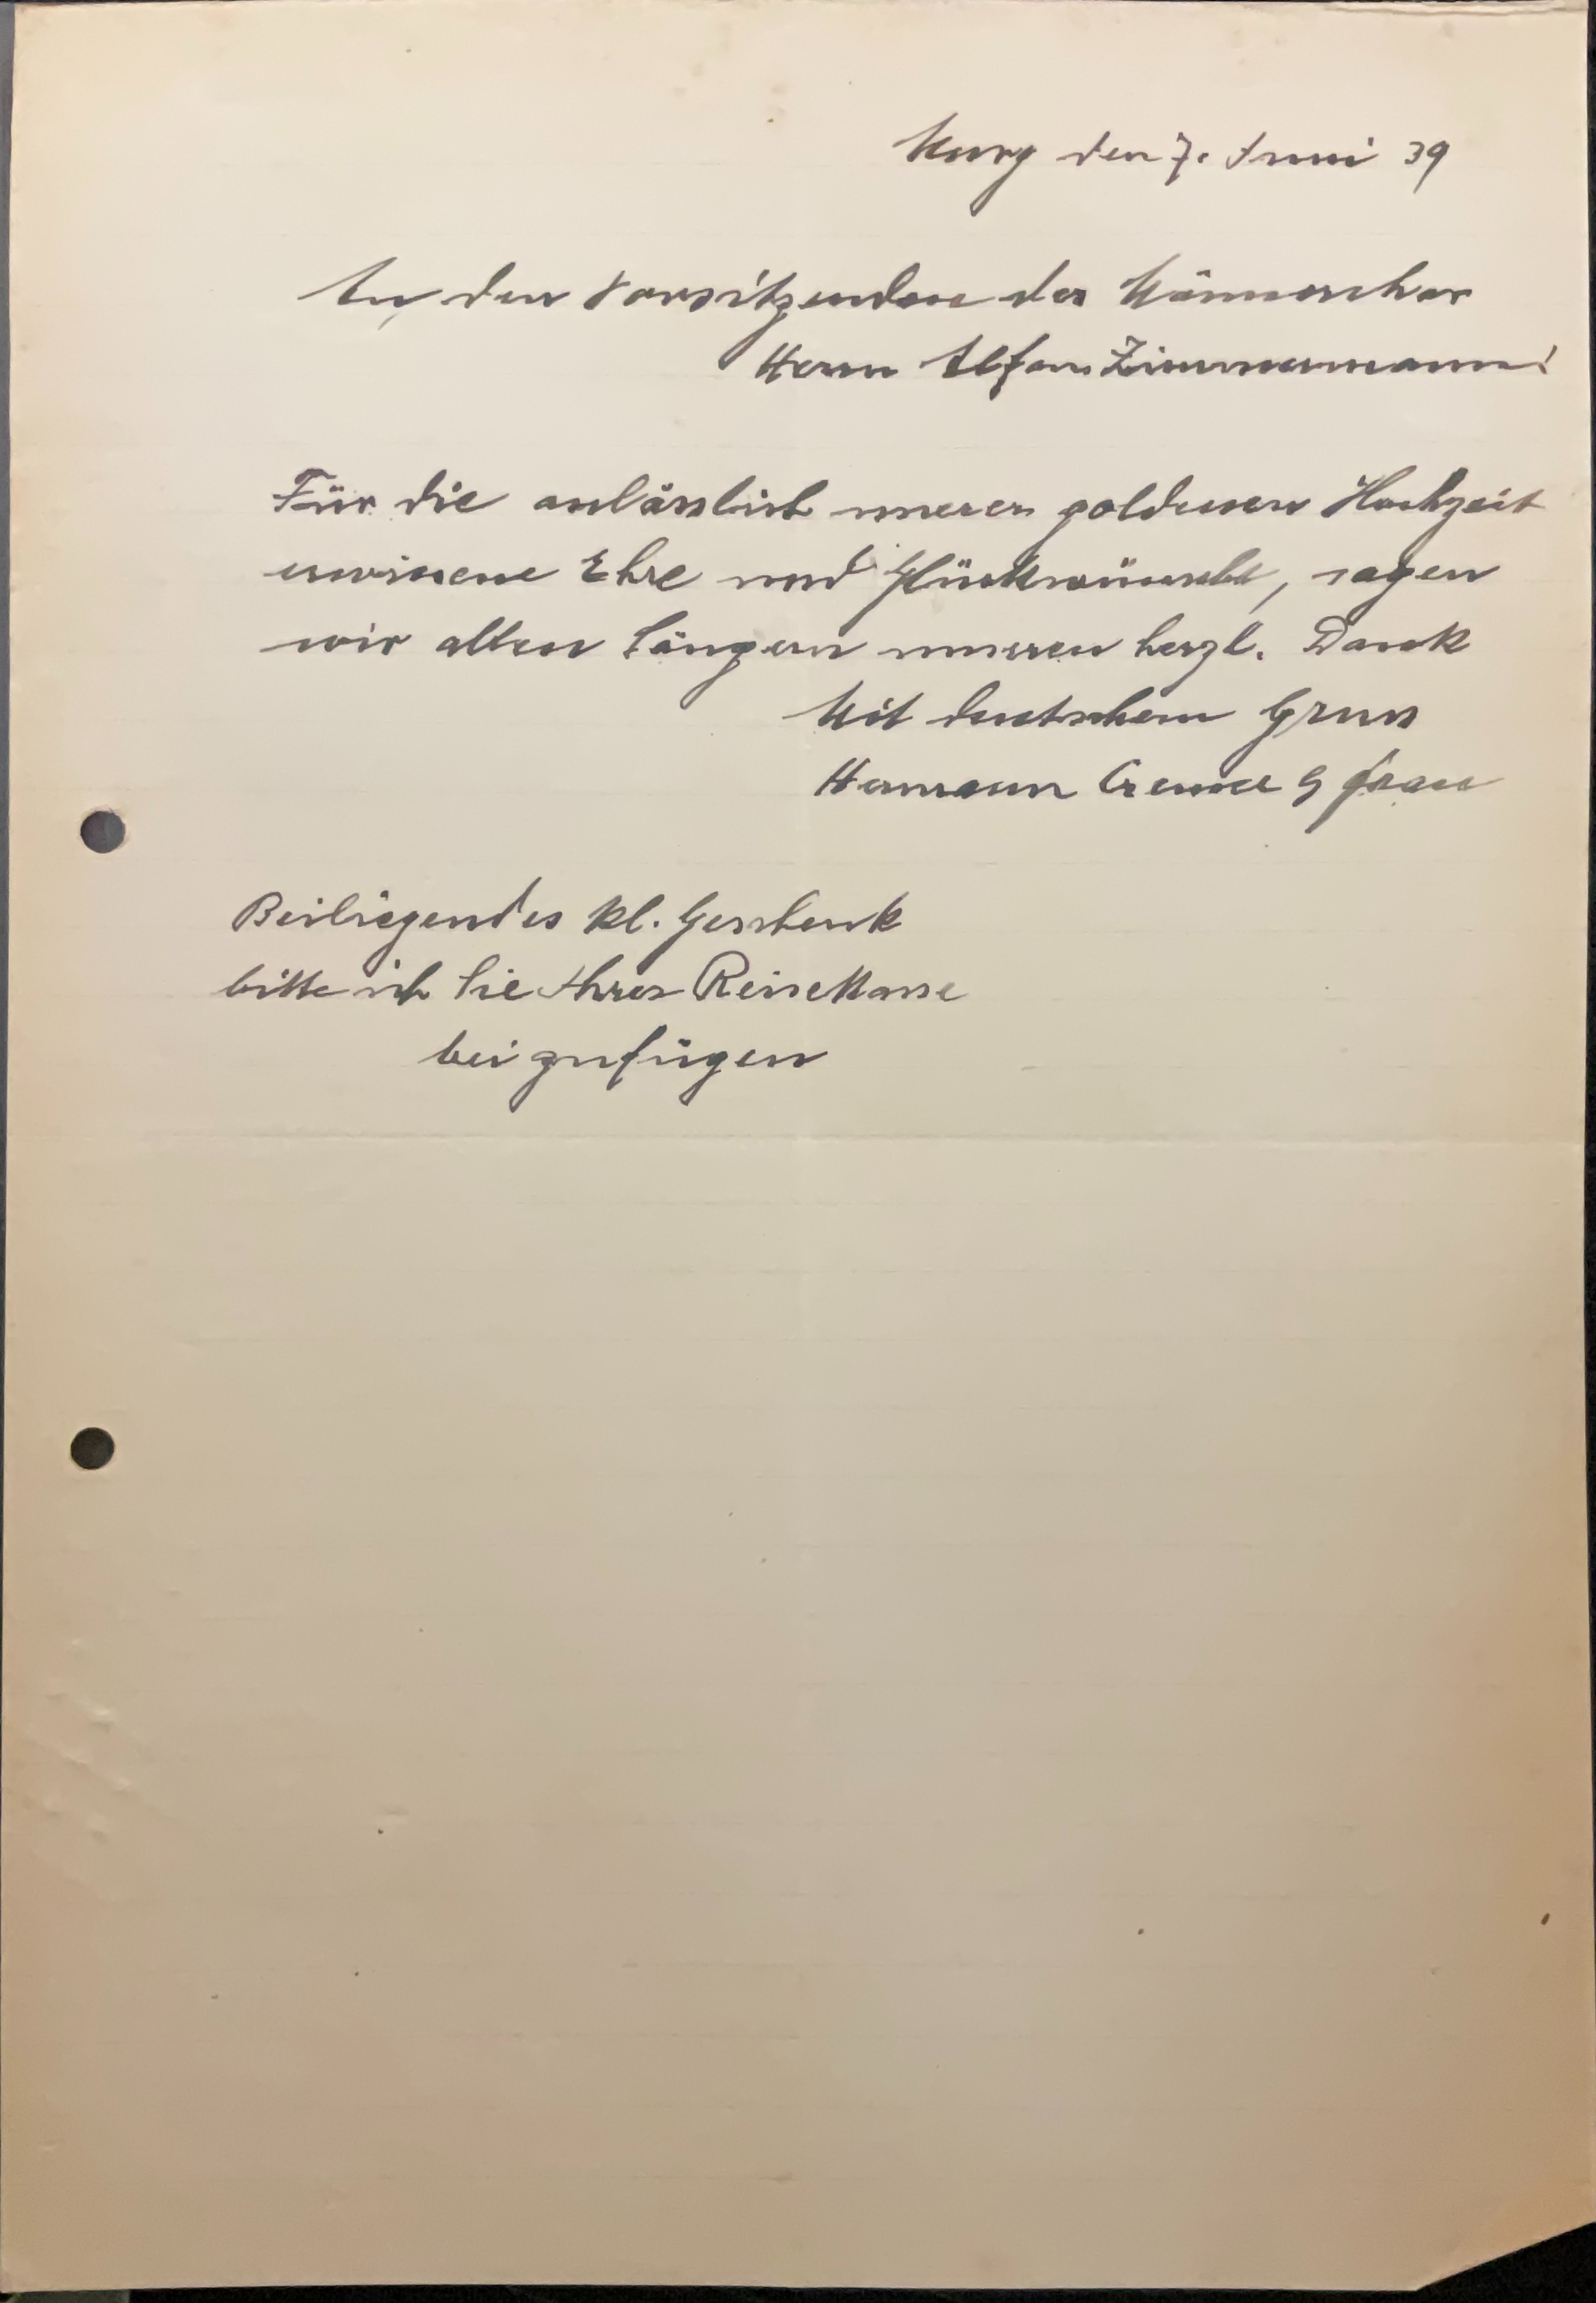 Murg den 7. Juni 39
An den Vorsitzenden des Männerchor
Herrn Alfons Zimmermann!
Für die anlässlich unserer goldenen Hochzeit
erwiesene Ehre und Glückwünsche, sagen
wir allen Sängern unseren herzl. Dank
Mit deutschem Gruss
Hermann & Frau
Beiliegendes kl. Geschenk
bitte ich Sie Ihrer Reisekasse
bei zufügen